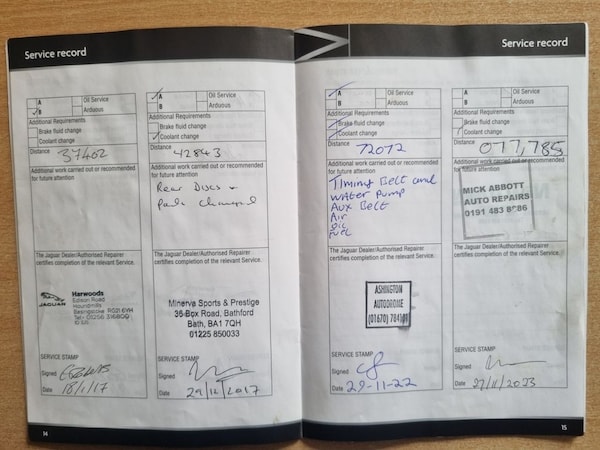 Service record
A
Oil Service
B
Arduous
Additional Requirements
Brake fluid change
Coolant change
Distance 37402
Additional work carried out or recommended
for future attention
The Jaguar Dealer/Authorised Repairer
certifies completion of the relevant Service.
JAGUAR
Harwoods
Basingstoke RG21 6YH
SERVICE STAMP
Signed
Date 18/1/17
14
A
Oil Service
B
Arduous
Additional Requirements
Brake fluid change
Coolant change
Distance 42843
Additional work carried out or recommended
for future attention
Rear Discs +
Pads changed
The Jaguar Dealer/Authorised Repairer
certifies completion of the relevant Service.
Minerva Sports & Prestige
36 Box Road, Bathford
Bath, BA1 7QH
01225 850033
SERVICE STAMP
Signed
Date 29/12/2017
Service record
A
Oil Service
B
Arduous
Additional Requirements
Brake fluid change
Coolant change
Distance 72072
Additional work carried out or recommended
for future attention
Timing Belt and
water pump
Aux Belt
Air
oil
fuel
The Jaguar Dealer/Authorised Repairer
certifies completion of the relevant Service.
ASHINGTON
AUTODROME
SERVICE STAMP
Signed
Date 29-11-22
A
Oil Service
B
Arduous
Additional Requirements
Brake fluid change
Coolant change
Distance 077,785
Additional work carried out or recommended
for future attention
MICK ABBOTT
AUTO REPAIRS
0191 483 8686
The Jaguar Dealer/Authorised Repairer
certifies completion of the relevant Service.
SERVICE STAMP
Signed
Date 27/11/2023
15